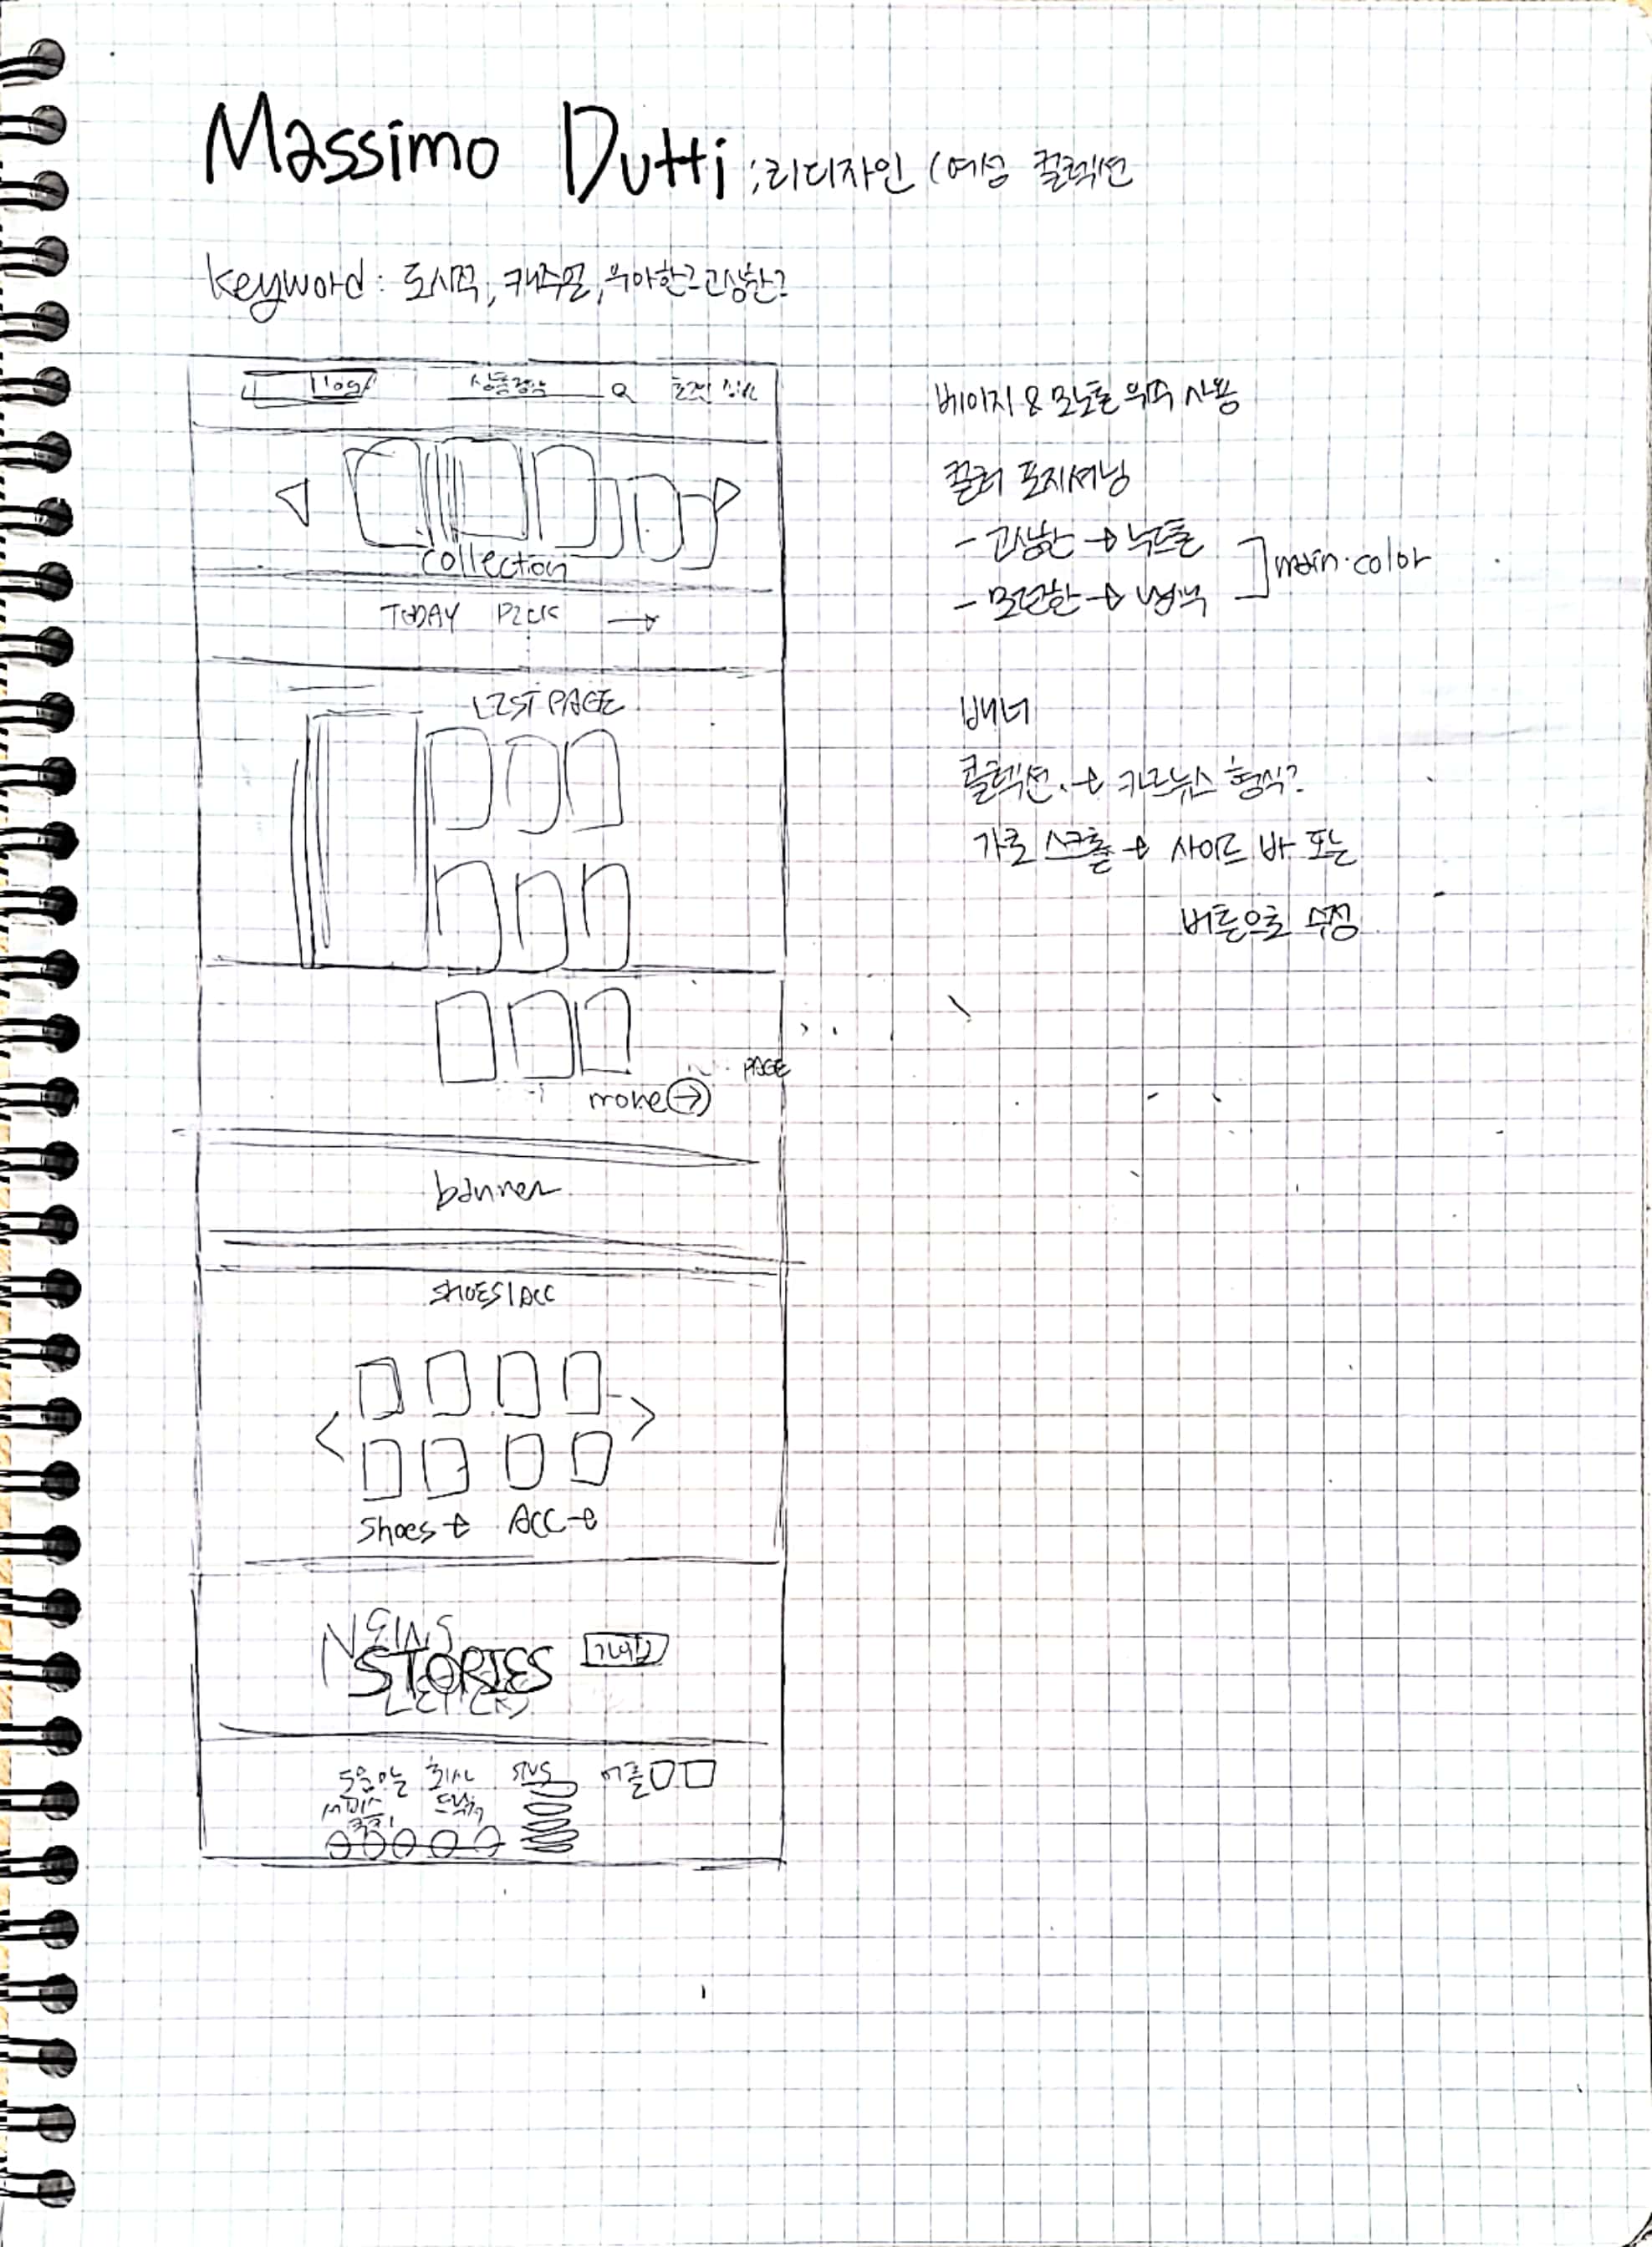 Massimo Dutti ; 리디자인 (여성 컬렉션
keyword : 도시적, 캐주얼, 우아한? 고상한?
logo
상품검색
collection
TODAY PICK →
LIST PAGE
more →
PAGE
banner
SHOES/ACC
< >
shoes → ACC →
NEWS
STORIES
LETTERS
도움말 회사 SNS 어플
베이지 & 모노톤 위주 사용
컬러 포지셔닝
- 고상한 → 누드톤
- 모던한 → 블랙
main.color
배너
콜렉션 → 카드뉴스 형식?
가로 스크롤 → 사이드 바 또는
버튼으로 수정